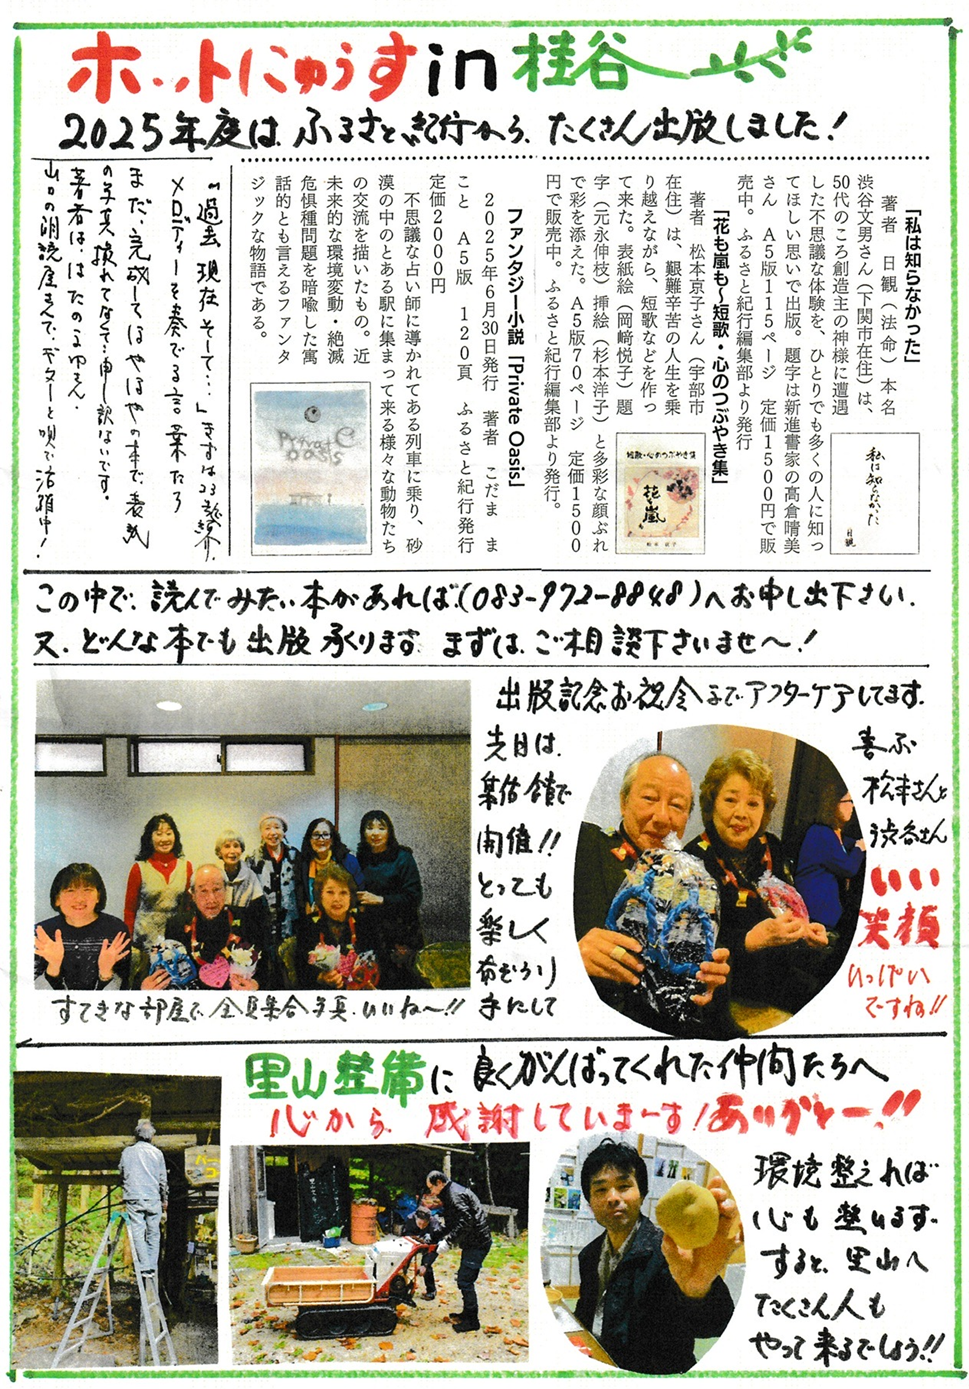 ホットにゅうす in 桂谷
2025年度は、ふるさと紀行から、たくさん出版しました!
「私は知らなかった」
著者 日観(法命)本名
渋谷文男さん(下関市在住)は、
50代のころ創造主の神様に遭遇
した不思議な体験を、ひとりでも多くの人に知っ
てほしい思いで出版。題字は新進書家の高倉晴美
さん A5版115ページ 定価1500円で販
売中。ふるさと紀行編集部より発行
『花も嵐も~短歌・心のつぶやき集』
著者 松本京子さん(宇部市
在住)は、艱難辛苦の人生を乗
り越えながら、短歌などを作っ
て来た。表紙絵(岡﨑悦子)題
字(元永伸枝)挿絵(杉本洋子)と多彩な顔ぶれ
で彩を添えた。A5版70ページ 定価1500
円で販売中。ふるさと紀行編集部より発行。
ファンタジー小説「Private Oasis」
2025年6月30日発行 著者 こだま ま
こと A5版 120頁 ふるさと紀行発行
定価2000円
不思議な占い師に導かれてある列車に乗り、砂
漠の中のとある駅に集まって来る様々な動物たち
の交流を描いたもの。近
未来的な環境変動・絶滅
危惧種問題を暗喩した寓
話的とも言えるファンタ
ジックな物語である。
私は知らなかった
日観
短歌・心のつぶやき集
花も嵐も
松本京子
Private Oasis
「過去 現在 そして…」
メロディーを奏でる言葉たち
まだ、完成してほやほやの本で、表紙
の写真撮れてなくて、申し訳ないです。
著者は、はたのまゆさん。
山口の朗読屋さんで、ギターと唄で活躍中!
この中で、読んでみたい本があれば、(083-972-8848)へお申し出下さい。
又、どんな本でも出版承ります。まずは、ご相談下さいませ~!
出版記念お祝会までアフターケアしてます。
先日は、
集佑館で
開催!!
とっても
楽しく
布ぞうり
手にして
喜ぶ
松本さんと
渋谷さん
いい
笑顔
いっぱい
ですね!!
すてきな部屋で、全員集合写真。いいね~!!
里山整備に良くがんばってくれた仲間たちへ
心から、感謝していまーす!ありがとー!!
環境整えれば
心も整います。
すると、里山へ
たくさん人も
やって来るでしょう!!